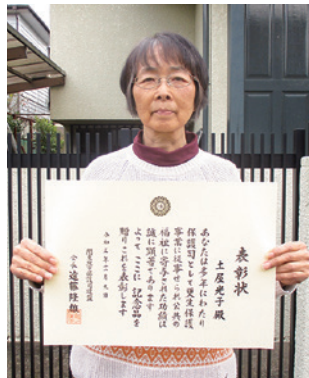 表彰状
土屋光子殿
あなたは多年にわたり
保護司として更生保護
事業に従事せられ公共の
福祉に寄与された功績は
誠に顕著であります
よってここに記念品を
贈りこれを表彰します
会長 遠藤隆雄